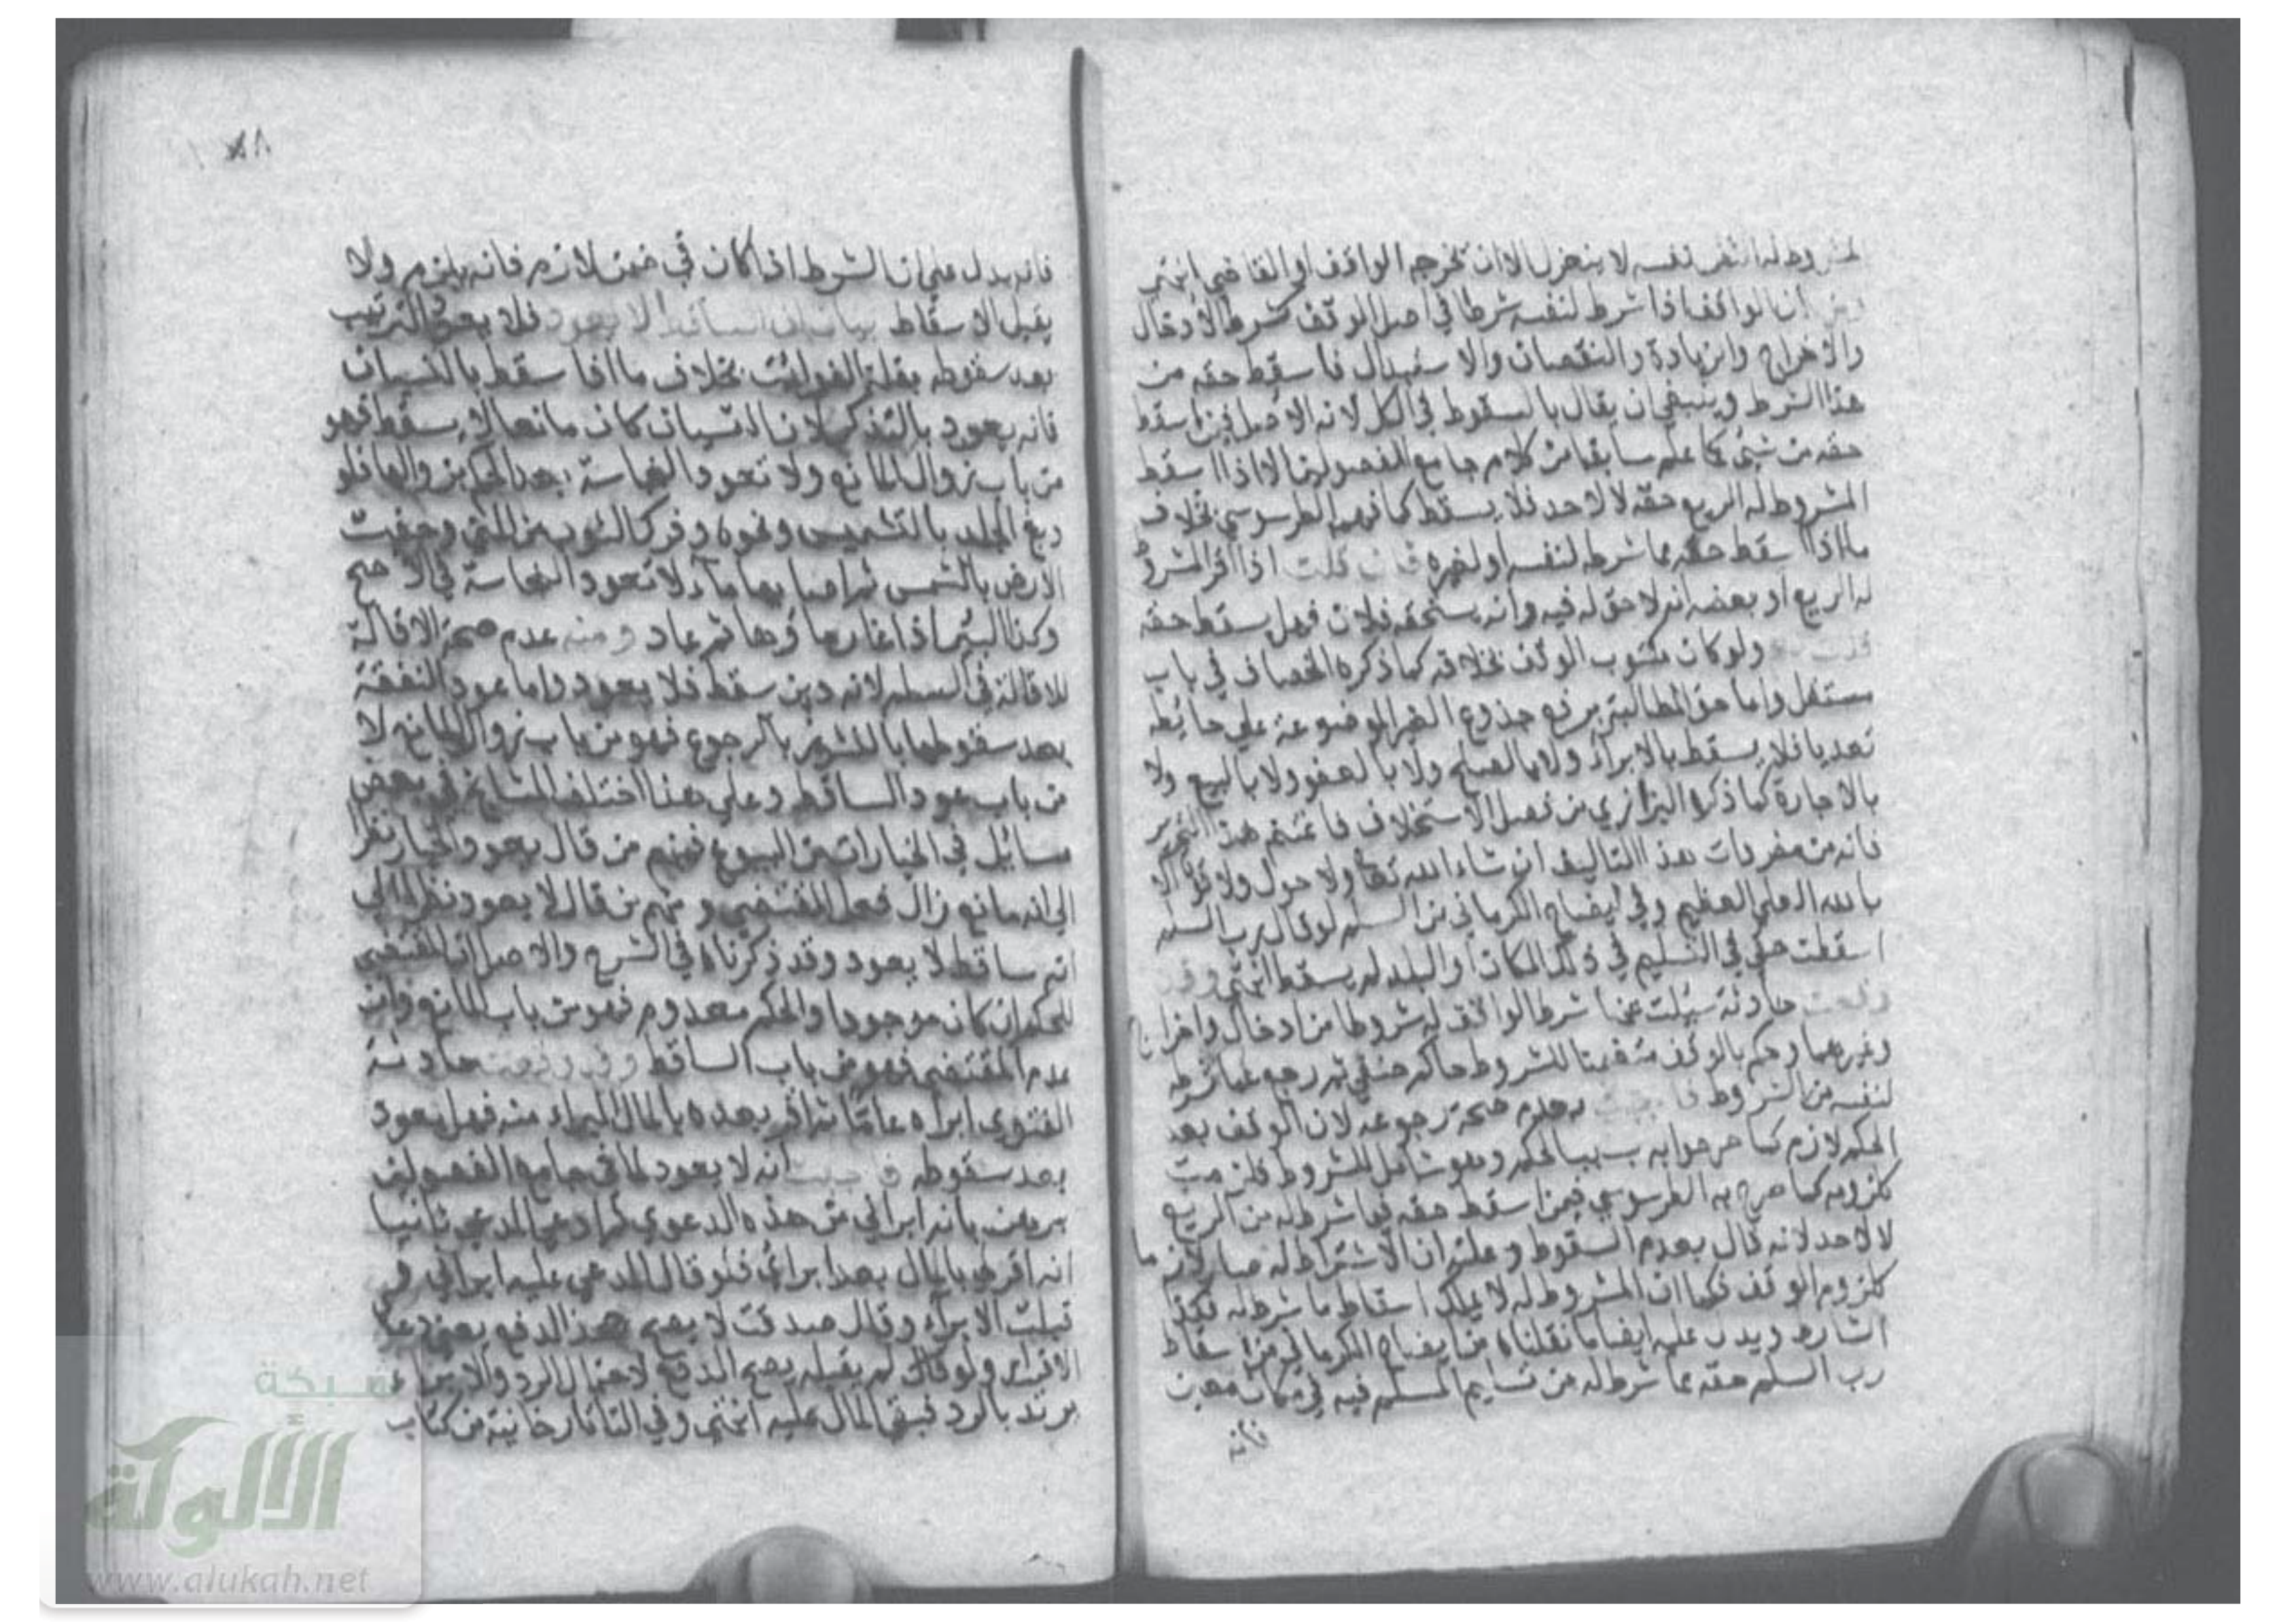 المشروط له النظر نفسه لا ينعزل الا ان يخرجه الواقف او القاضي انتهى
ان الواقف اذا شرط لنفسه شرطا في اصل الوقف كشرط الادخال
والاخراج والزيادة والنقصان والاستبدال فاسقط حقه من
هذا الشرط وينبغي ان يقال بالسقوط في الكل لان الاصل فيمن اسقط
حقه من شيء كما علم سابقا من كلام جامع الفصولين الا اذا اسقط
المشروط له الريع حقه لا لاحد فلا يسقط كما فهمه الطرسوسي بخلاف
ما اذا اسقط حقه مما شرطه لنفسه او لغيره فان قلت اذا اقر المشروط
له الريع او بعضه انه لا حق له فيه وانه يستحقه فلان فهل يسقط حقه
قلت نعم ولو كان مكتوب الوقف بخلافه كما ذكره الخصاف في باب
مستقل واما حق المطالبة برفع جذوع الغير الموضوعة على حائطه
تعديا فلا يسقط بالابراء ولا بالصلح ولا بالعفو ولا بالبيع ولا
بالاجارة كما ذكره البزازي من فصل الاستحلاف فاغتنم هذا التحرير
فانه من مفردات هذا التاليف ان شاء الله تعا ولا حول ولا قوة الا
بالله العلي العظيم وفي ايضاح الكرماني من السلم لو قال رب السلم
اسقطت حقي في التسليم في ذلك المكان او البلد لم يسقط انتهى وقد
وقعت حادثة سئلت عنها شرط الواقف له شروطا من ادخال واخراج
وغيرهما وحكم بالوقف متضمنا للشروط حاكم حنفي ثم رجع عما شرطه
لنفسه من الشروط فاجبت بعدم صحة رجوعه لان الوقف بعد
الحكم لازم كما صرحوا به بسبب الحكم وهو شامل للشروط فلزمت
كلزومه كما صرح به الطرسوسي فيمن اسقط حقه فيما شرط له من الريع
لا لاحد لانه قال بعدم السقوط وعلته ان الاشتراط له صار لازما
كلزوم الوقف فكما ان المشروط له لا يملك اسقاط ما شرط له فكذا
الشارط ويدل عليه ايضا ما نقلناه من ايضاح الكرماني من اسقاط
رب السلم حقه مما شرط له من تسليم المسلم فيه في مكان معين
فانه
٨٨
فانه يدل على ان الشرط اذا كان في ضمن لازم فانه يلزم ولا
يقبل الاسقاط بيان ان الساقط لا يعود فلا يعود الترتيب
بعد سقوطه بقلة الفوائت بخلاف ما اذا سقط بالنسيان
فانه يعود بالتذكر لان النسيان كان مانعا لا مسقطا فهو
من باب زوال المانع ولا تعود النجاسة بعد الحكم بزوالها فلو
دبغ الجلد بالتشميس ونحوه وفرك الثوب من المني وجفت
الارض بالشمس ثم اصابها ماء لا تعود النجاسة في الاصح
وكذا البئر اذا غار ماؤها ثم عاد ومنه عدم صحة الاقالة
للاقالة في السلم لانه دين سقط فلا يعود واما عود النفقة
بعد سقوطها بالنشوز بالرجوع فهو من باب زوال المانع لا
من باب عود الساقط وعلى هذا اختلف المشايخ في بعض
مسائل في الخيارات من البيوع فمنهم من قال يعود الخيار نظرا
الى انه مانع زال فعمل المقتضي ومنهم من قال لا يعود نظرا الى
انه ساقط لا يعود وقد ذكرناه في الشرح والاصل ان المقتضي
للحكم ان كان موجودا والحكم معدوم فهو من باب المانع وان
عدم المقتضي فهو من باب الساقط وقد وقعت حادثة
الفتوى ابراه عاما ثم اقر بعده بالمال المبراء منه فهل يعود
بعد سقوطه فاجبت انه لا يعود لما في جامع الفصولين
برهن بانه ابراني من هذه الدعوى ثم ادعى المدعي ثانيا
انه اقر لي بالمال بعد ابرائي فلو قال المدعى عليه ابراني و
قبلت الابراء وقال صدقت لا يصح هذا الدفع يعني دعوى
الاقرار ولو قال لم يقبله يصح الدفع لاحتمال الرد والابراء
يرتد بالرد فبقي المال عليه انتهى وفي التاتارخانية من كتاب
شبكة
الألوكة
www.alukah.net